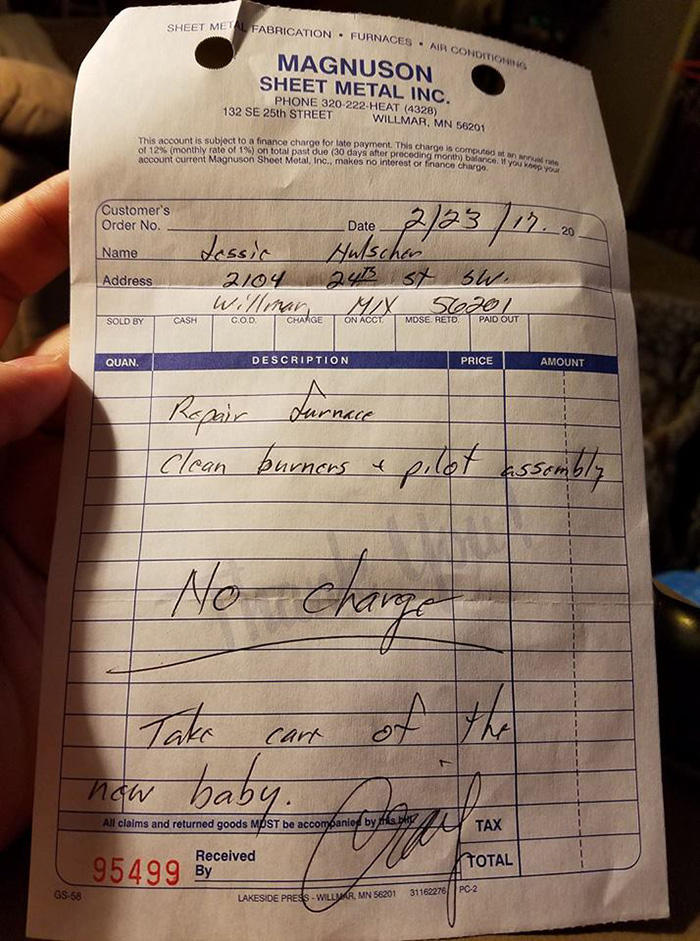 SHEET METAL FABRICATION • FURNACES • AIR CONDITIONING
MAGNUSON
SHEET METAL INC.
PHONE 320-222-HEAT (4328)
132 SE 25th STREET WILLMAR, MN 56201
This account is subject to a finance charge for late payment. This charge is computed at an annual rate
of 12% (monthly rate of 1%) on total past due (30 days after preceding month) balance. If you keep your
account current Magnuson Sheet Metal, Inc., makes no interest or finance charge.
Customer's
Order No. Date 2/23/17. 20
Name Jessie Hulscher
Address 2104 24TH St SW.
Willmar, MN 56201
SOLD BY CASH C.O.D. CHARGE ON ACCT. MDSE. RETD. PAID OUT
QUAN. DESCRIPTION PRICE AMOUNT
Repair furnace
Clean burners + pilot assembly
Thank You!
No charge
Take care of the
new baby.
All claims and returned goods MUST be accompanied by this bill.
TAX
95499 Received
By
TOTAL
GS-58 LAKESIDE PRESS - WILLMAR, MN 56201 31162276 PC-2